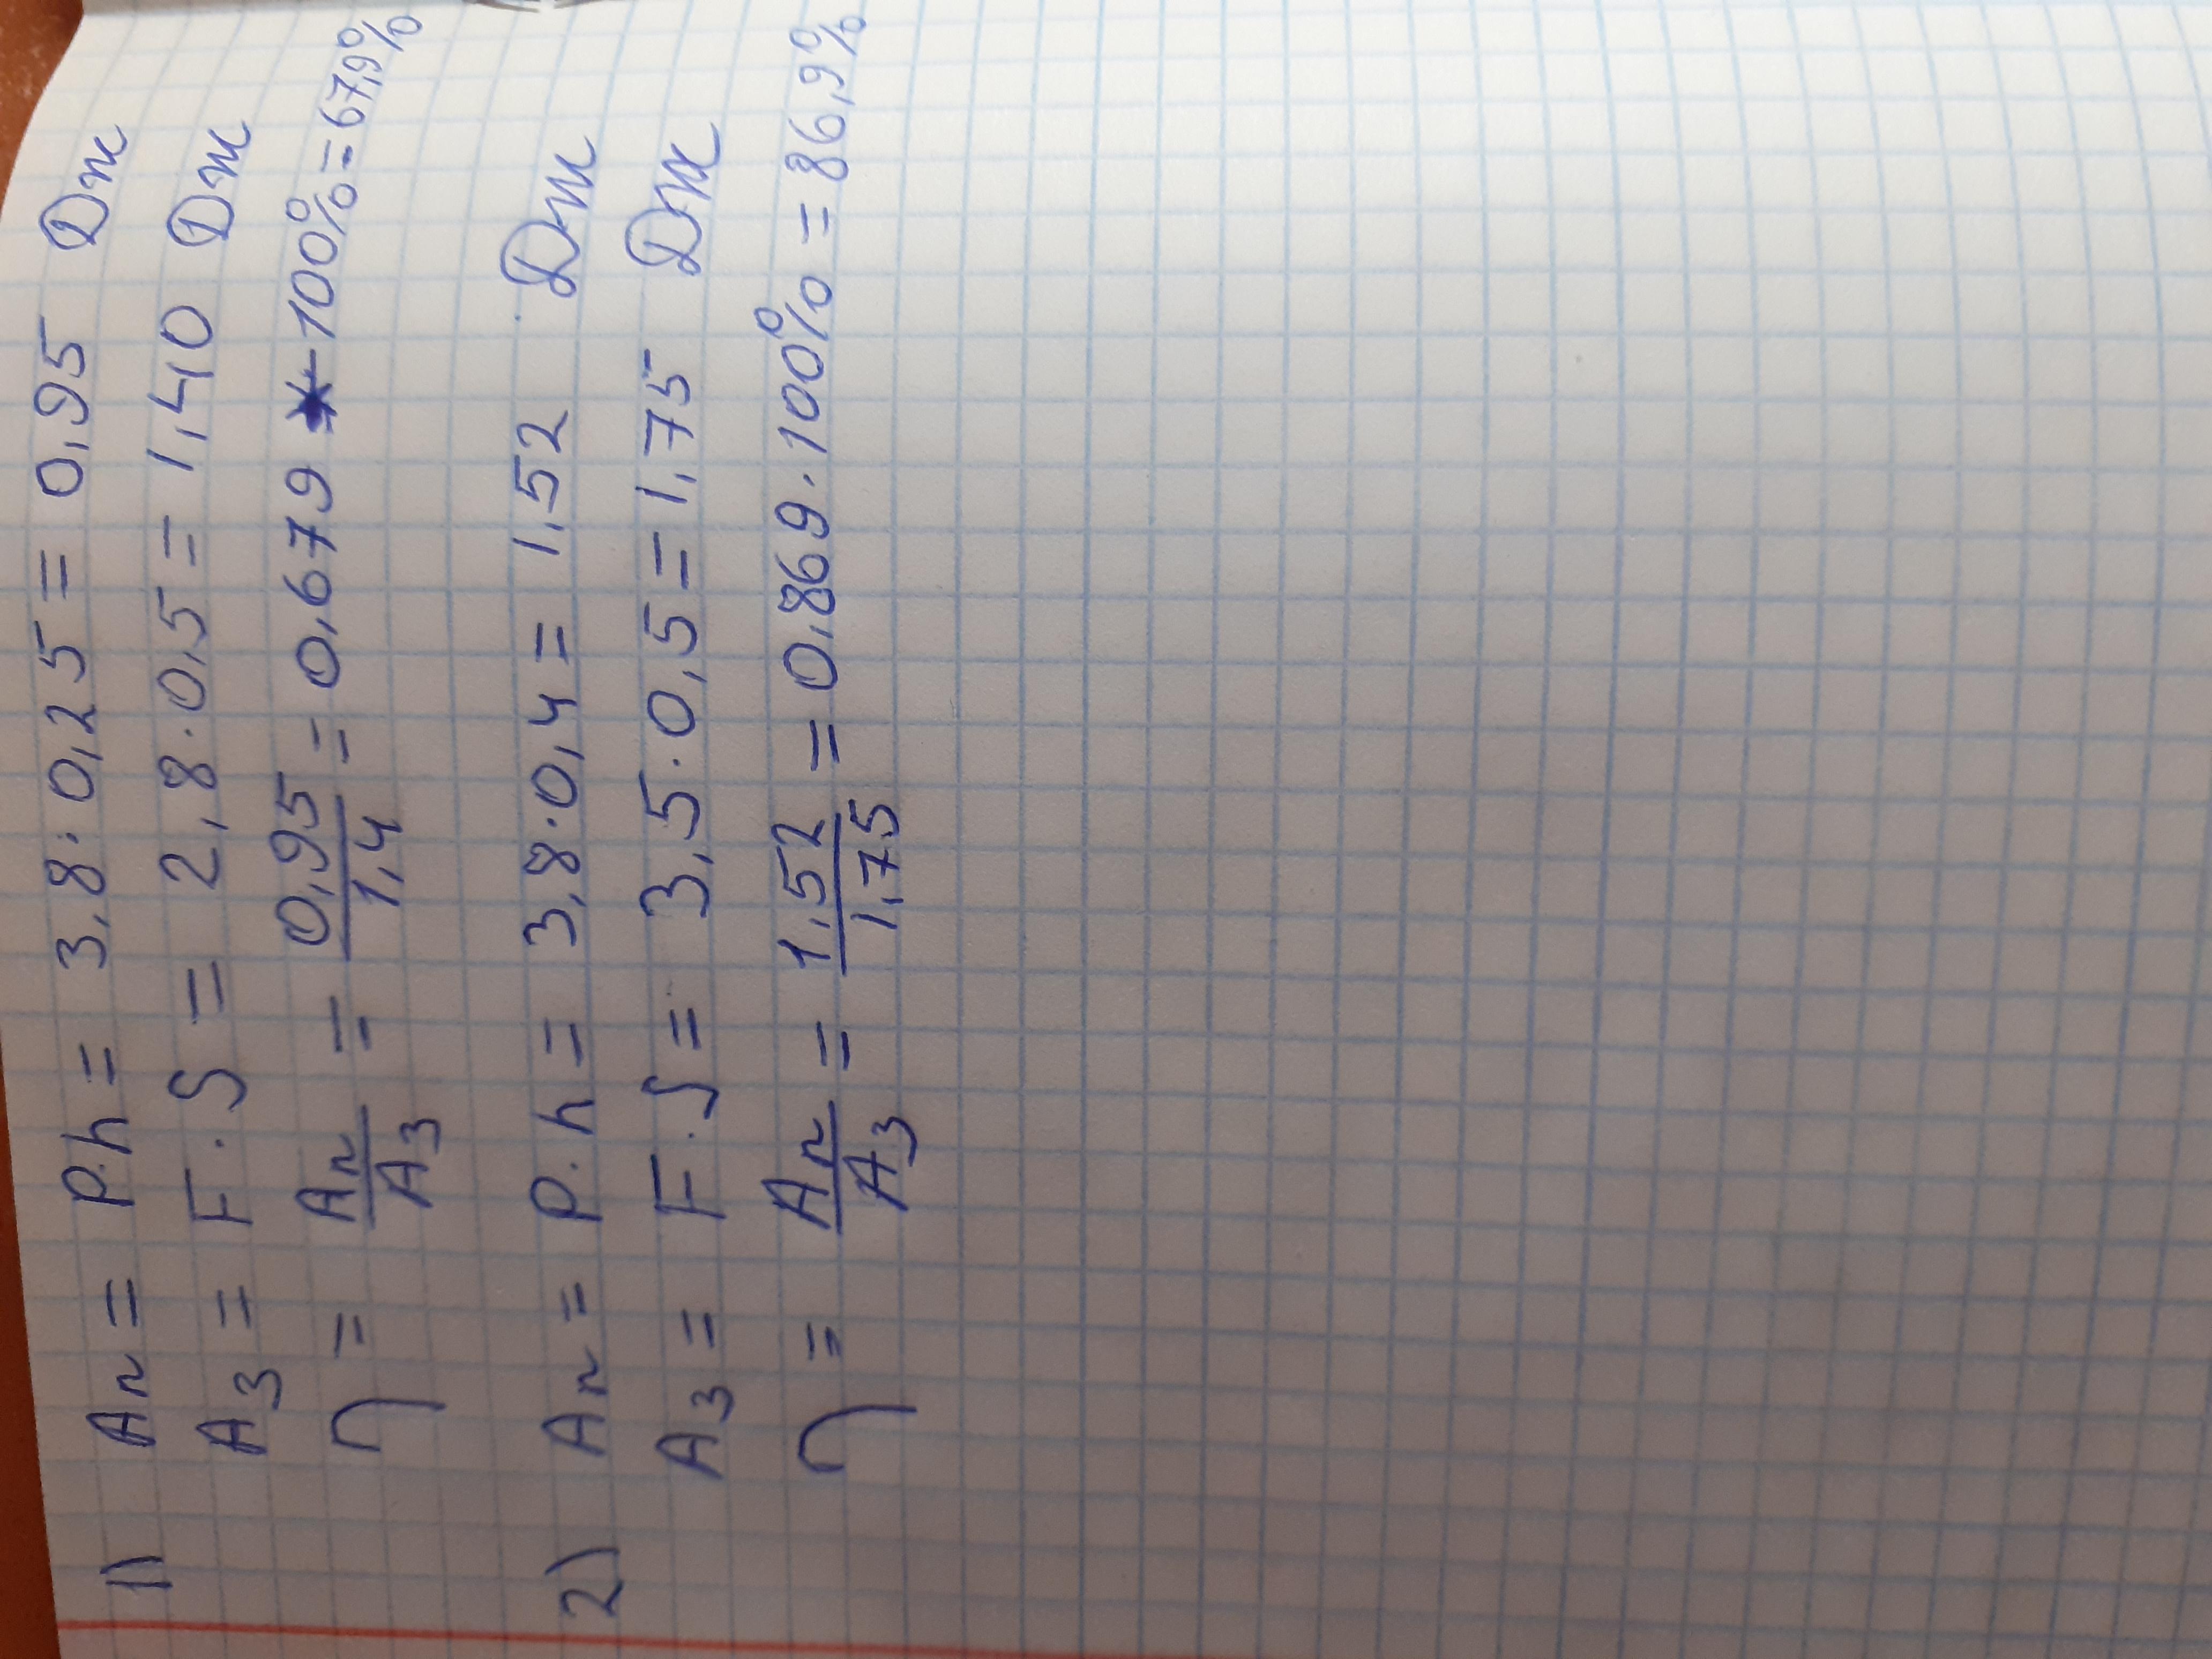 1) Aп = P·h = 3,8·0,25 = 0,95 Дж
Aз = F·S = 2,8·0,5 = 1,40 Дж
η = Aп/Aз = 0,95/1,4 = 0,679·100% = 67,9%
2) Aп = P·h = 3,8·0,4 = 1,52 Дж
Aз = F·S = 3,5·0,5 = 1,75 Дж
η = Aп/Aз = 1,52/1,75 = 0,869·100% = 86,9%